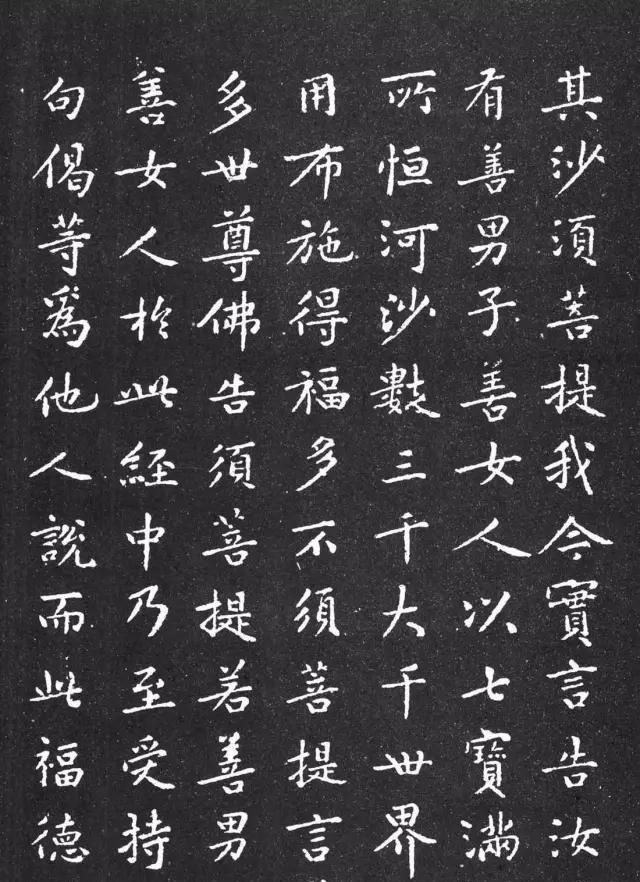 其沙須菩提我今實言告汝
有善男子善女人以七寶滿
所恒河沙數三千大千世界
用布施得福多不須菩提言
多世尊佛告須菩提若善男
善女人於此經中乃至受持
句偈等爲他人說而此福德